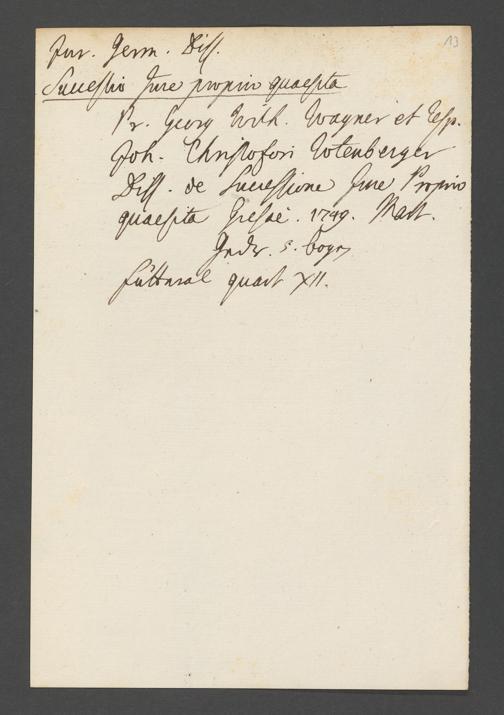 13
Jur. Germ. Diss.
Successio Jure proprio quaesita
Pr. Georg Wilh. Wagner et Resp.
Joh. Christofori Rotenberger
Diss. de Successione Jure Proprio
quaesita Giesae. 1749. Mart.
Gedr. 5. bogen
futteral quart XII.